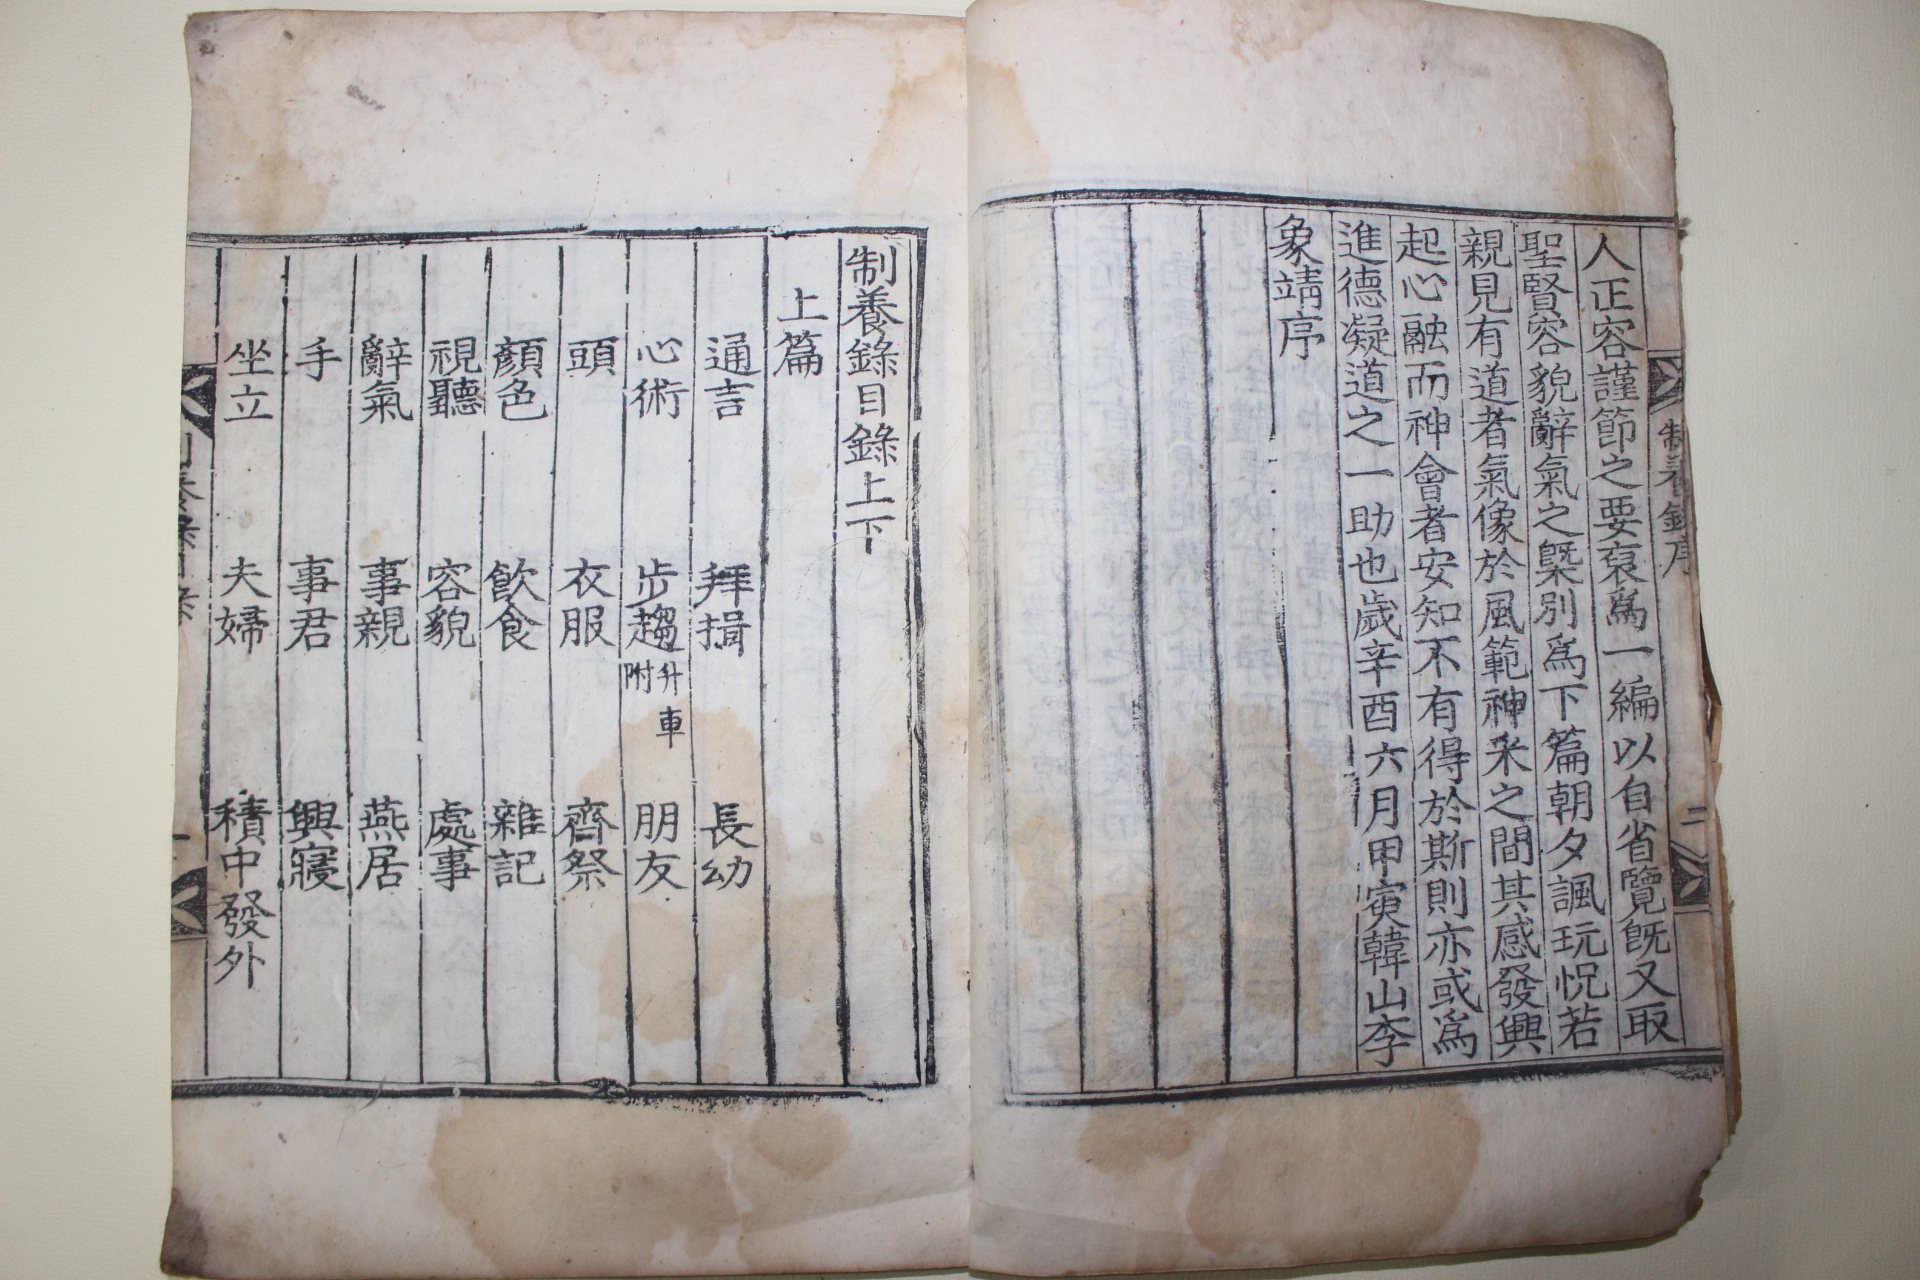 人正容謹節之要裒爲一編以自省覽旣又取
聖賢容貌辭氣之槩別爲下篇朝夕諷玩怳若
親見有道者氣像於風範神采之間其感發興
起心融而神會者安知不有得於斯則亦或爲
進德凝道之一助也歲辛酉六月甲寅韓山李
象靖序
制養錄序
二
制養錄目錄上下
上篇
通言 拜揖 長幼
心術 步趨 升車附 朋友
頭 衣服 齊祭
顏色 飮食 雜記
視聽 容貌 處事
辭氣 事親 燕居
手 事君 興寢
坐立 夫婦 積中發外
一